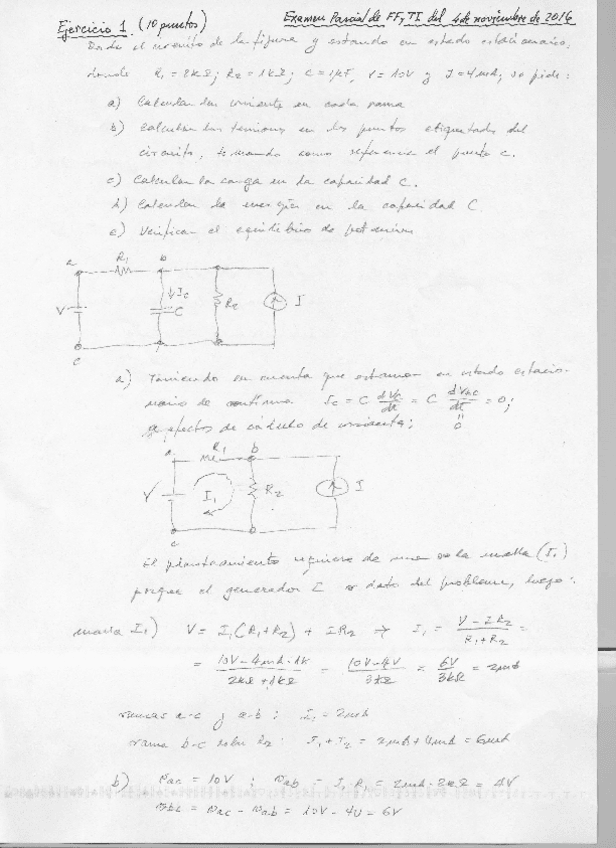 Ejercicio 1 (10 puntos) Examen Parcial de FF y TI del 4 de noviembre de 2016
Dado el circuito de la figura y estando en estado estacionario,
donde R1 = 2kΩ; R2 = 1kΩ; C = 1μF, V = 10V y I = 4mA; se pide:
a) Calcular la corriente en cada rama
b) Calcular las tensiones en los puntos etiquetados del
circuito, tomando como referencia el punto c.
c) Calcular la carga en la capacidad C.
d) Calcular la energía en la capacidad C.
e) Verificar el equilibrio de potencias
a R1 b
V Ic C R2 I
c
a) Teniendo en cuenta que estamos en estado estacio-
nario de continua Ic = C dVc/dt = C dVbc/dt = 0;
a efectos de cálculo de corriente;
0
a R1 b
V I1 R2 I
c
El planteamiento requiere de una sola malla (I1)
porque el generador I es dato del problema, luego:
malla I1) V = I1(R1+R2) + IR2 → I1 = (V - IR2)/(R1+R2) =
= (10V - 4mA·1k)/(2kΩ + 1kΩ) = (10V - 4V)/3kΩ = 6V/3kΩ = 2mA
ramas a-c y a-b: I1 = 2mA
rama b-c sobre R2: I1 + I2 = 2mA + 4mA = 6mA
b) vac = 10V ; vab = I1·R1 = 2mA·2kΩ = 4V
vbc = vac - vab = 10V - 4V = 6V